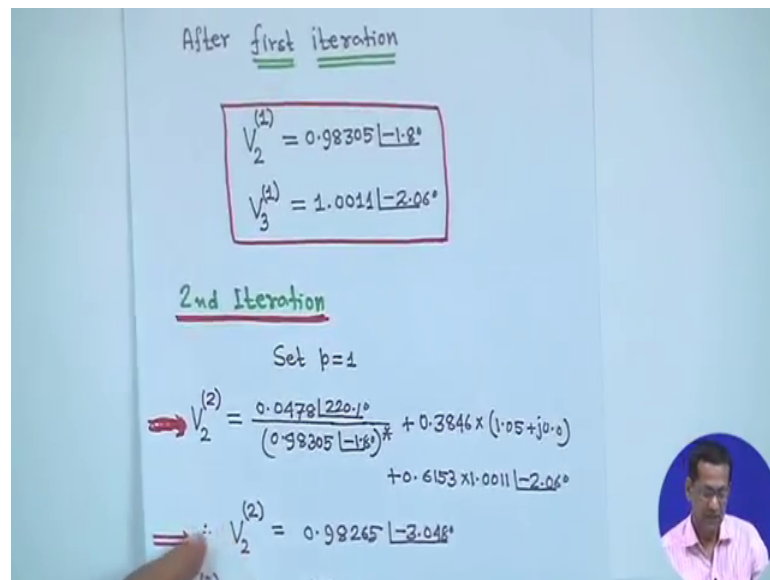 After first iteration
V₂⁽¹⁾ = 0.98305 ∠-1.8°
V₃⁽¹⁾ = 1.0011 ∠-2.06°
2nd Iteration
Set p=1
V₂⁽²⁾ = 0.0478∠220.1° / (0.98305 ∠-1.8°)* + 0.3846 × (1.05+j0.0)
+0.6153 ×1.0011 ∠-2.06°
V₂⁽²⁾ = 0.98265 ∠-3.048°